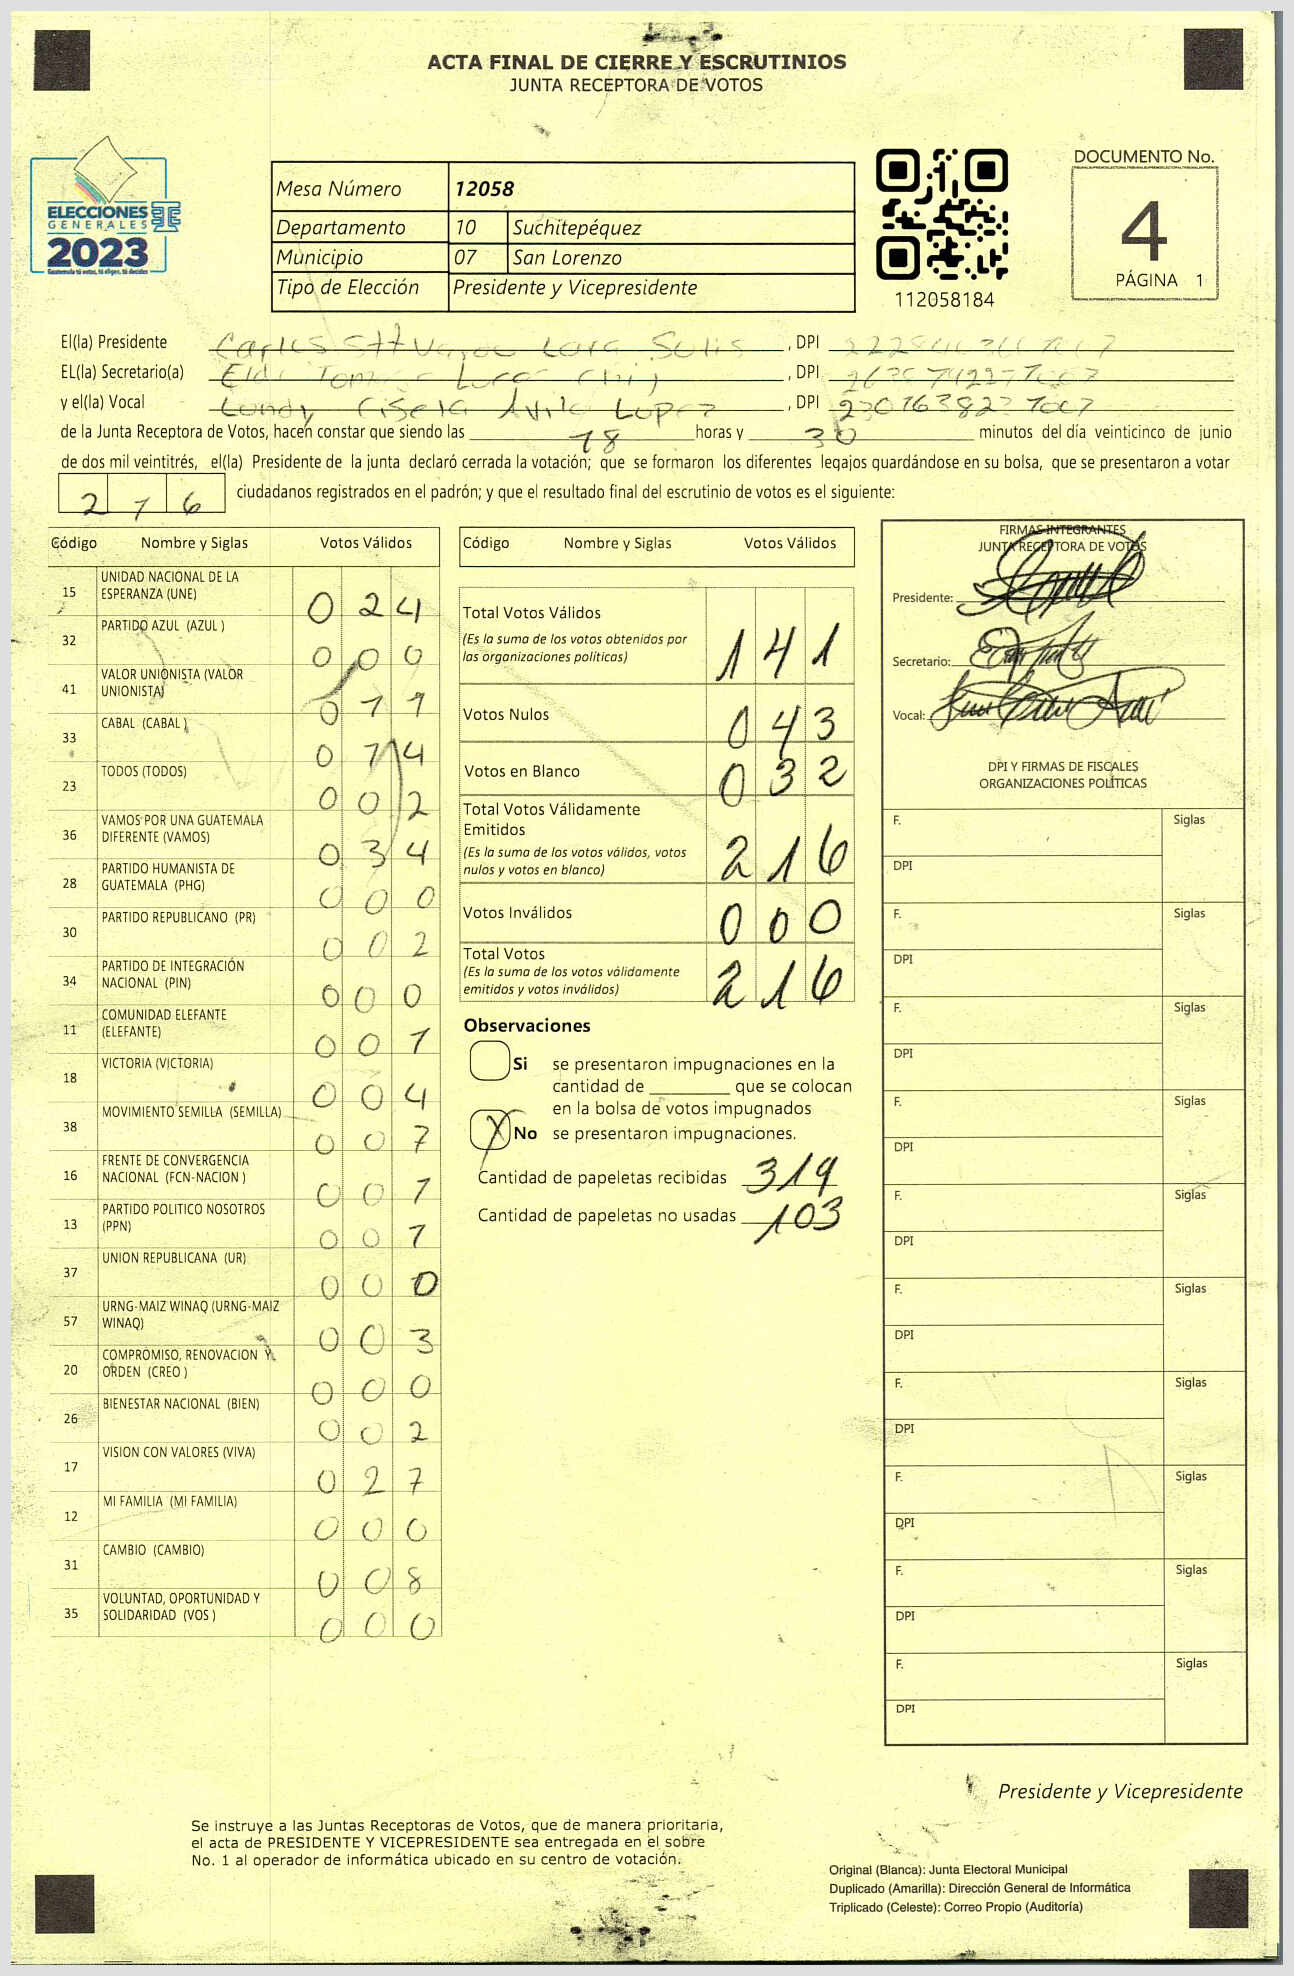 ACTA FINAL DE CIERRE Y ESCRUTINIOS
JUNTA RECEPTORA DE VOTOS
ELECCIONES
GENERALES
2023
Guatemala tú votas, tú eliges, tú decides
Mesa Número 12058
Departamento 10 Suchitepéquez
Municipio 07 San Lorenzo
Tipo de Elección Presidente y Vicepresidente
112058184
DOCUMENTO No.
4
PÁGINA 1
El(la) Presidente Lara Solis , DPI
EL(la) Secretario(a) , DPI
y el(la) Vocal Gisela Avila Lopez , DPI
de la Junta Receptora de Votos, hacen constar que siendo las 18 horas y 30 minutos del día veinticinco de junio
de dos mil veintitrés, el(la) Presidente de la junta declaró cerrada la votación; que se formaron los diferentes legajos guardándose en su bolsa, que se presentaron a votar
216 ciudadanos registrados en el padrón; y que el resultado final del escrutinio de votos es el siguiente:
Código Nombre y Siglas Votos Válidos
15 UNIDAD NACIONAL DE LA ESPERANZA (UNE) 024
32 PARTIDO AZUL (AZUL ) 000
41 VALOR UNIONISTA (VALOR UNIONISTA) 011
33 CABAL (CABAL ) 014
23 TODOS (TODOS) 002
36 VAMOS POR UNA GUATEMALA DIFERENTE (VAMOS) 034
28 PARTIDO HUMANISTA DE GUATEMALA (PHG) 000
30 PARTIDO REPUBLICANO (PR) 002
34 PARTIDO DE INTEGRACIÓN NACIONAL (PIN) 000
11 COMUNIDAD ELEFANTE (ELEFANTE) 001
18 VICTORIA (VICTORIA) 004
38 MOVIMIENTO SEMILLA (SEMILLA) 007
16 FRENTE DE CONVERGENCIA NACIONAL (FCN-NACION ) 001
13 PARTIDO POLITICO NOSOTROS (PPN) 001
37 UNION REPUBLICANA (UR) 000
57 URNG-MAIZ WINAQ (URNG-MAIZ WINAQ) 003
20 COMPROMISO, RENOVACION Y ORDEN (CREO ) 000
26 BIENESTAR NACIONAL (BIEN) 002
17 VISION CON VALORES (VIVA) 027
12 MI FAMILIA (MI FAMILIA) 000
31 CAMBIO (CAMBIO) 008
35 VOLUNTAD, OPORTUNIDAD Y SOLIDARIDAD (VOS ) 000
Código Nombre y Siglas Votos Válidos
Total Votos Válidos 141
(Es la suma de los votos obtenidos por
las organizaciones políticas)
Votos Nulos 043
Votos en Blanco 032
Total Votos Válidamente
Emitidos 216
(Es la suma de los votos válidos, votos
nulos y votos en blanco)
Votos Inválidos 000
Total Votos 216
(Es la suma de los votos válidamente
emitidos y votos inválidos)
Observaciones
Si se presentaron impugnaciones en la
cantidad de ________ que se colocan
en la bolsa de votos impugnados
X No se presentaron impugnaciones.
Cantidad de papeletas recibidas 319
Cantidad de papeletas no usadas 103
FIRMAS INTEGRANTES
JUNTA RECEPTORA DE VOTOS
Presidente:
Secretario:
Vocal:
DPI Y FIRMAS DE FISCALES
ORGANIZACIONES POLÍTICAS
F. Siglas
DPI
F. Siglas
DPI
F. Siglas
DPI
F. Siglas
DPI
F. Siglas
DPI
F. Siglas
DPI
F. Siglas
DPI
F. Siglas
DPI
F. Siglas
DPI
F. Siglas
DPI
Presidente y Vicepresidente
Se instruye a las Juntas Receptoras de Votos, que de manera prioritaria,
el acta de PRESIDENTE Y VICEPRESIDENTE sea entregada en el sobre
No. 1 al operador de informática ubicado en su centro de votación.
Original (Blanca): Junta Electoral Municipal
Duplicado (Amarilla): Dirección General de Informática
Triplicado (Celeste): Correo Propio (Auditoría)